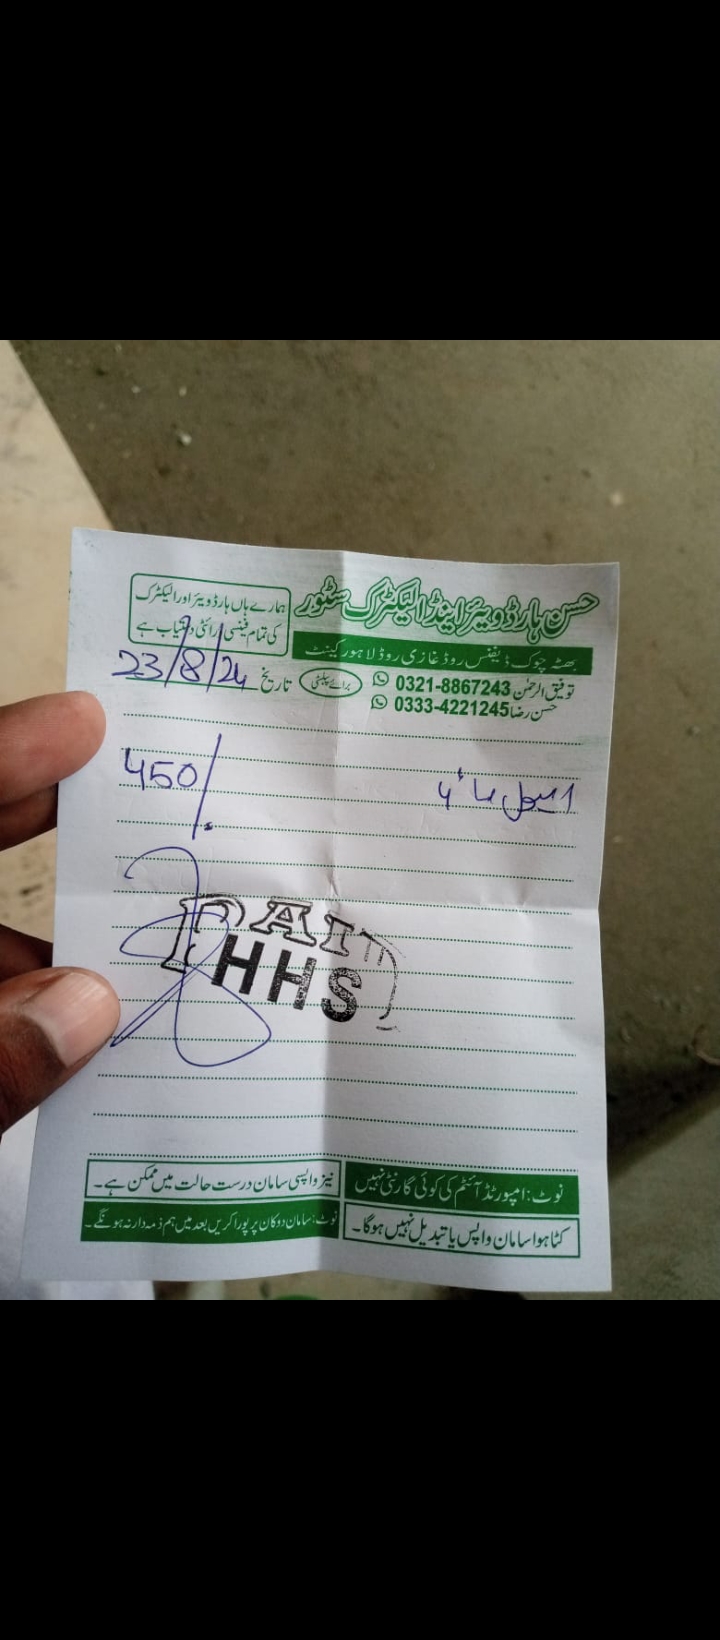 حسن ہارڈویئر اینڈ الیکٹرک سٹور
ہمارے ہاں ہارڈویئر اور الیکٹرک
کی تمام فینسی ورائٹی دستیاب ہے
بھٹہ چوک ڈیفنس روڈ غازی روڈ لاہور کینٹ
توفیق الرحمٰن 0321-8867243
حسن رضا 0333-4221245
برائے پبلسٹی
تاریخ 23/8/24
450/.
PAID
HHS
نوٹ: امپورٹڈ آئیٹم کی کوئی گارنٹی نہیں
نیز واپسی سامان درست حالت میں ممکن ہے۔
کٹا ہوا سامان واپس یا تبدیل نہیں ہوگا۔
نوٹ: سامان دوکان پر پورا کریں بعد میں ہم ذمہ دار نہ ہونگے۔